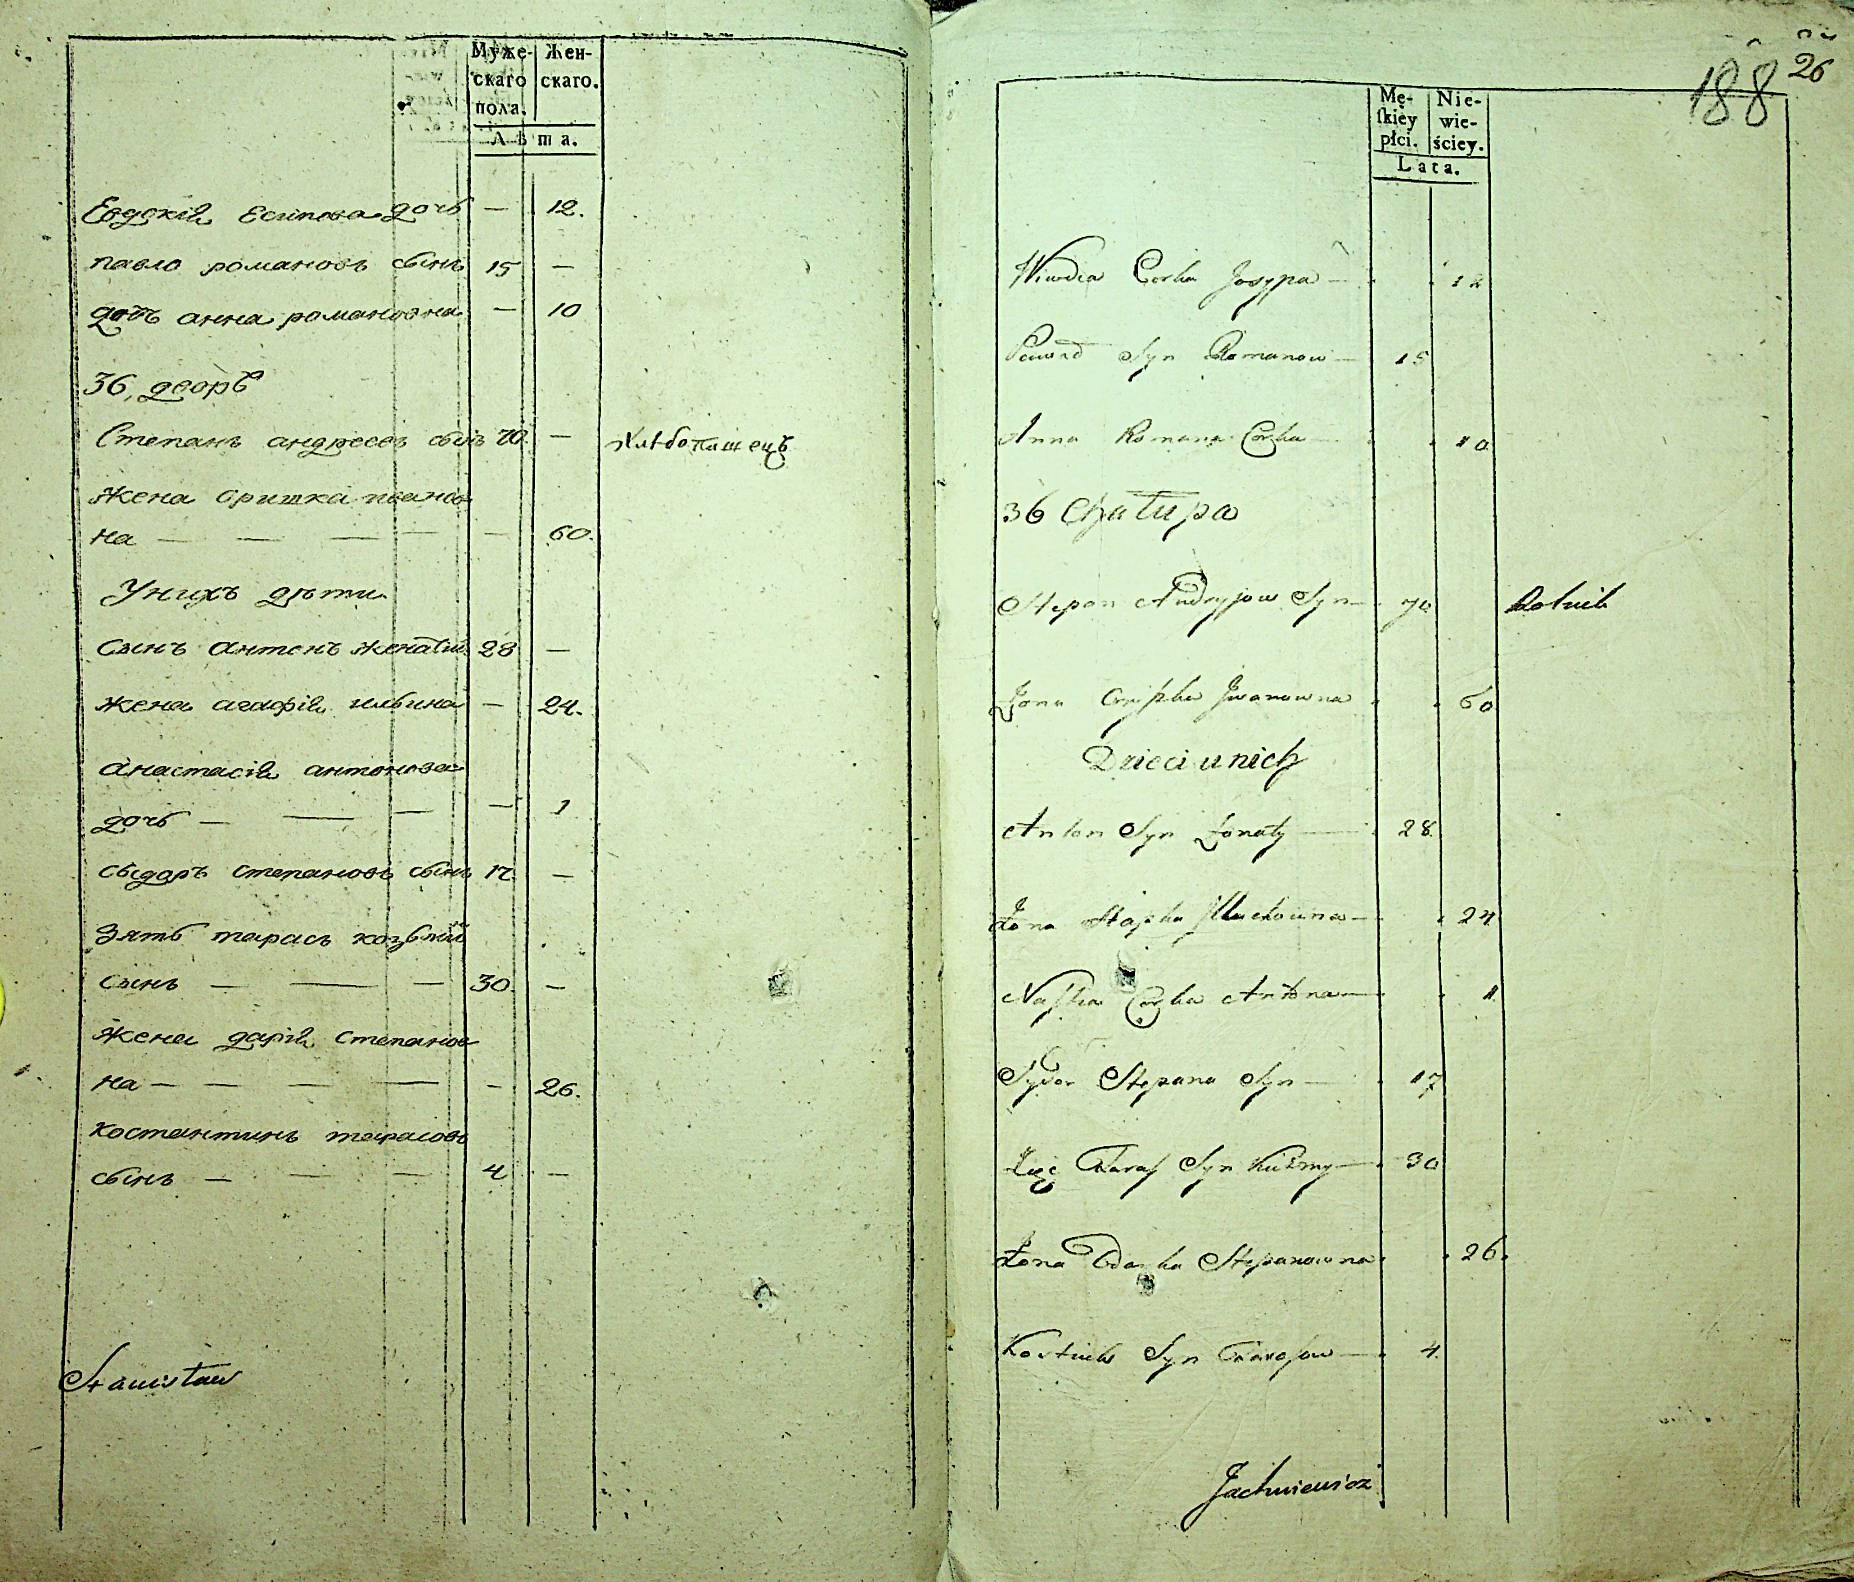 Муже-
скаго
пола.
Жен-
скаго.
Лѣта.
Евдокія есипова дочь — 12.
павло романовъ сынъ 15 —
дочь анна романовна — 10
36, дворъ
Степанъ андреевъ сынъ 70. — хлѣбопашецъ
жена оришка иванов
на — — — — — 60.
У нихъ дѣти
сынъ антонъ женатий 28 —
жена агафія ильина — 24.
анастасія антонова
дочь — — — — 1
сыдоръ степановъ сынъ 17. —
Зять тарасъ козьмин
сынъ — — — 30. —
жена дарія степанов
на — — — — — 26.
костантинъ тарасовъ
сынъ — — — 4 —
Stanisław
188 26
Mę-
skiey
płci.
Nie-
wie-
ściey.
Lata.
Corka Josypa — 12
Syn Romanow — 15
Anna Romana Corka 10
36 Chałupa
Stepan Andryjow Syn — 70 Rolnik
Żona Oryszka Jwanowna 60
Dzieci u nich
Anton Syn Żonaty — 28.
Żona — 24
Nastia Corka Antona — 1.
Sydor Stepana Syn — 17
Zięć Taras Syn Kuźmy — 30
Żona Odarka Stepanowna 26.
Kostiuk Syn Tarasow — 4.
Jachniewicz